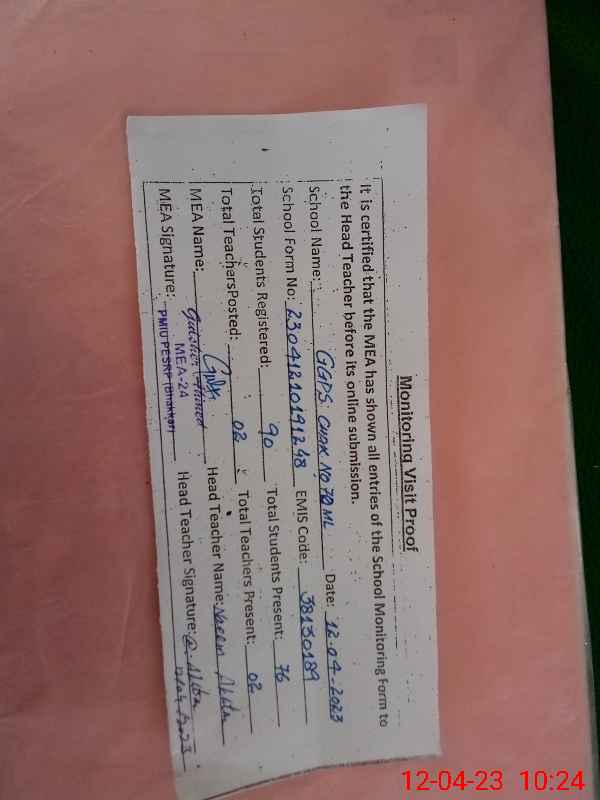 Monitoring Visit Proof
It is certified that the MEA has shown all entries of the School Monitoring Form to
the Head Teacher before its online submission.
School Name: GGPS CHAK NO 70 ML Date: 12-04-2023
School Form No: 23041210191248 EMIS Code: 38130189
Total Students Registered: 90 Total Students Present: 76
Total TeachersPosted: 02 Total Teachers Present: 02
MEA Name: Head Teacher Name:
MEA-24
MEA Signature: PMIU PESRP (Bhakkar) Head Teacher Signature:
12/04/2023
12-04-23 10:24